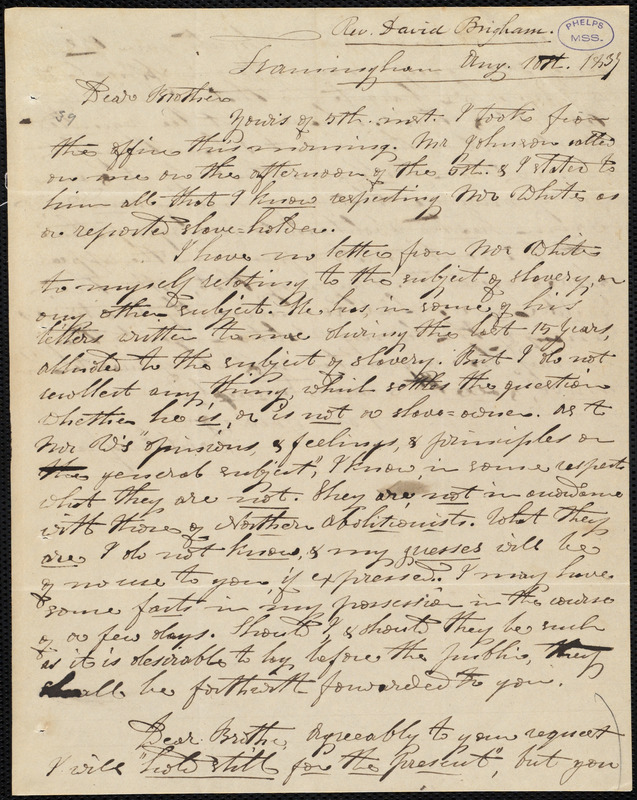 Rev. David Brigham.
PHELPS
MSS.
Framingham Aug. 10th. 1839
Dear Brother
59
Yours of 5th. inst. I took from
the office this morning. Mr Johnson called
on me on the afternoon of the 5th. & I stated to
him all that I know respecting Mr White as
a reported slave-holder.
I have no letter from Mr White
to myself relating to the subject of slavery, or
any other subject. He has, in some of his
letters written to me during the last 15 years,
alluded to the subject of slavery. But I do not
recollect any thing, which settles the question
whether he is, or is not a slave=owner. As to
Mr W's "opinions, & feelings, & principles on
the general subject", I know in some respects
what they are not. They are not in accordance
with those of Northern Abolitionists. What they
are I do not know, & my guesses will be
of no use to you, if expressed. I may have
some facts in my possession in the course
of a few days. Should I, & should they be such
as it is desirable to lay before the public, they
shall be forthwith forwarded to you.
Dear Brother, Agreeably to your request
I will "hold still for the present", but you